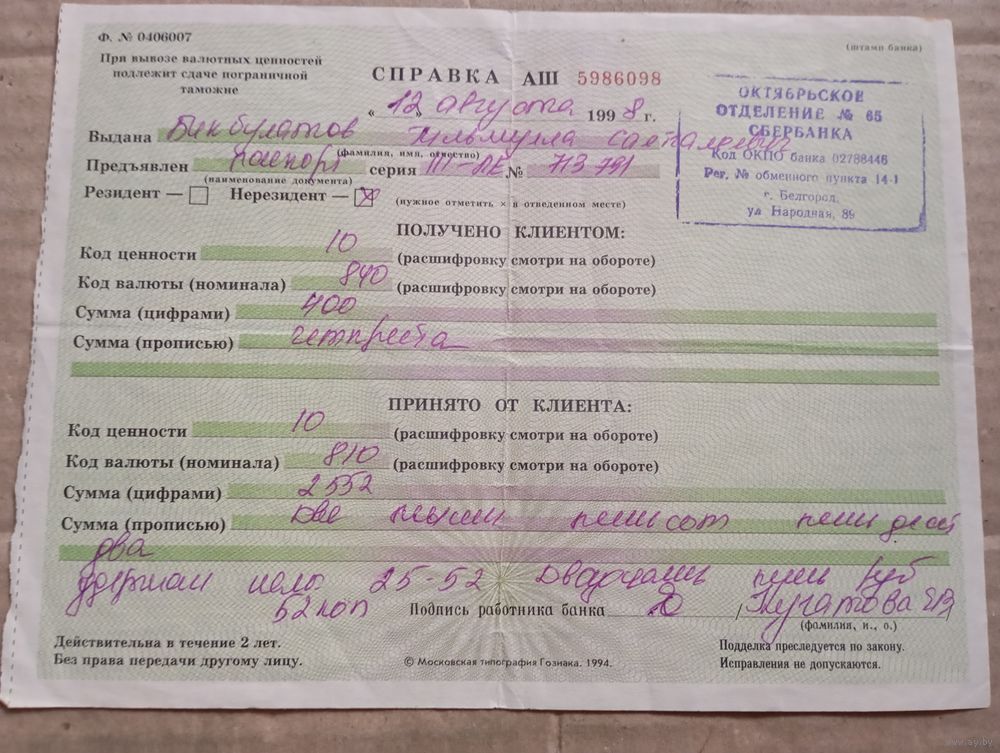 Ф. № 0406007
(штамп банка)
При вывозе валютных ценностей
подлежит сдаче пограничной
таможне
СПРАВКА АШ 5986098
« 12 » августа 1998 г.
ОКТЯБРЬСКОЕ
ОТДЕЛЕНИЕ № 65
СБЕРБАНКА
Код ОКПО банка 02788446
Рег. № обменного пункта 14-1
г. Белгород,
ул Народная, 89
Выдана Бикбулатов
(фамилия, имя, отчество)
Предъявлен паспорт серия III-ЛЕ № 713791
(наименование документа)
Резидент — Нерезидент — X
(нужное отметить × в отведенном месте)
ПОЛУЧЕНО КЛИЕНТОМ:
Код ценности 10 (расшифровку смотри на обороте)
Код валюты (номинала) 840 (расшифровку смотри на обороте)
Сумма (цифрами) 400
Сумма (прописью) четыреста
ПРИНЯТО ОТ КЛИЕНТА:
Код ценности 10 (расшифровку смотри на обороте)
Код валюты (номинала) 810 (расшифровку смотри на обороте)
Сумма (цифрами) 2552
Сумма (прописью) две тысячи пятьсот пятьдесят
два
удержан налог 25-52 двадцать пять руб
52 коп Подпись работника банка /
(фамилия, и., о.)
Действительна в течение 2 лет.
Без права передачи другому лицу.
© Московская типография Гознака. 1994.
Подделка преследуется по закону.
Исправления не допускаются.
www.ay.by